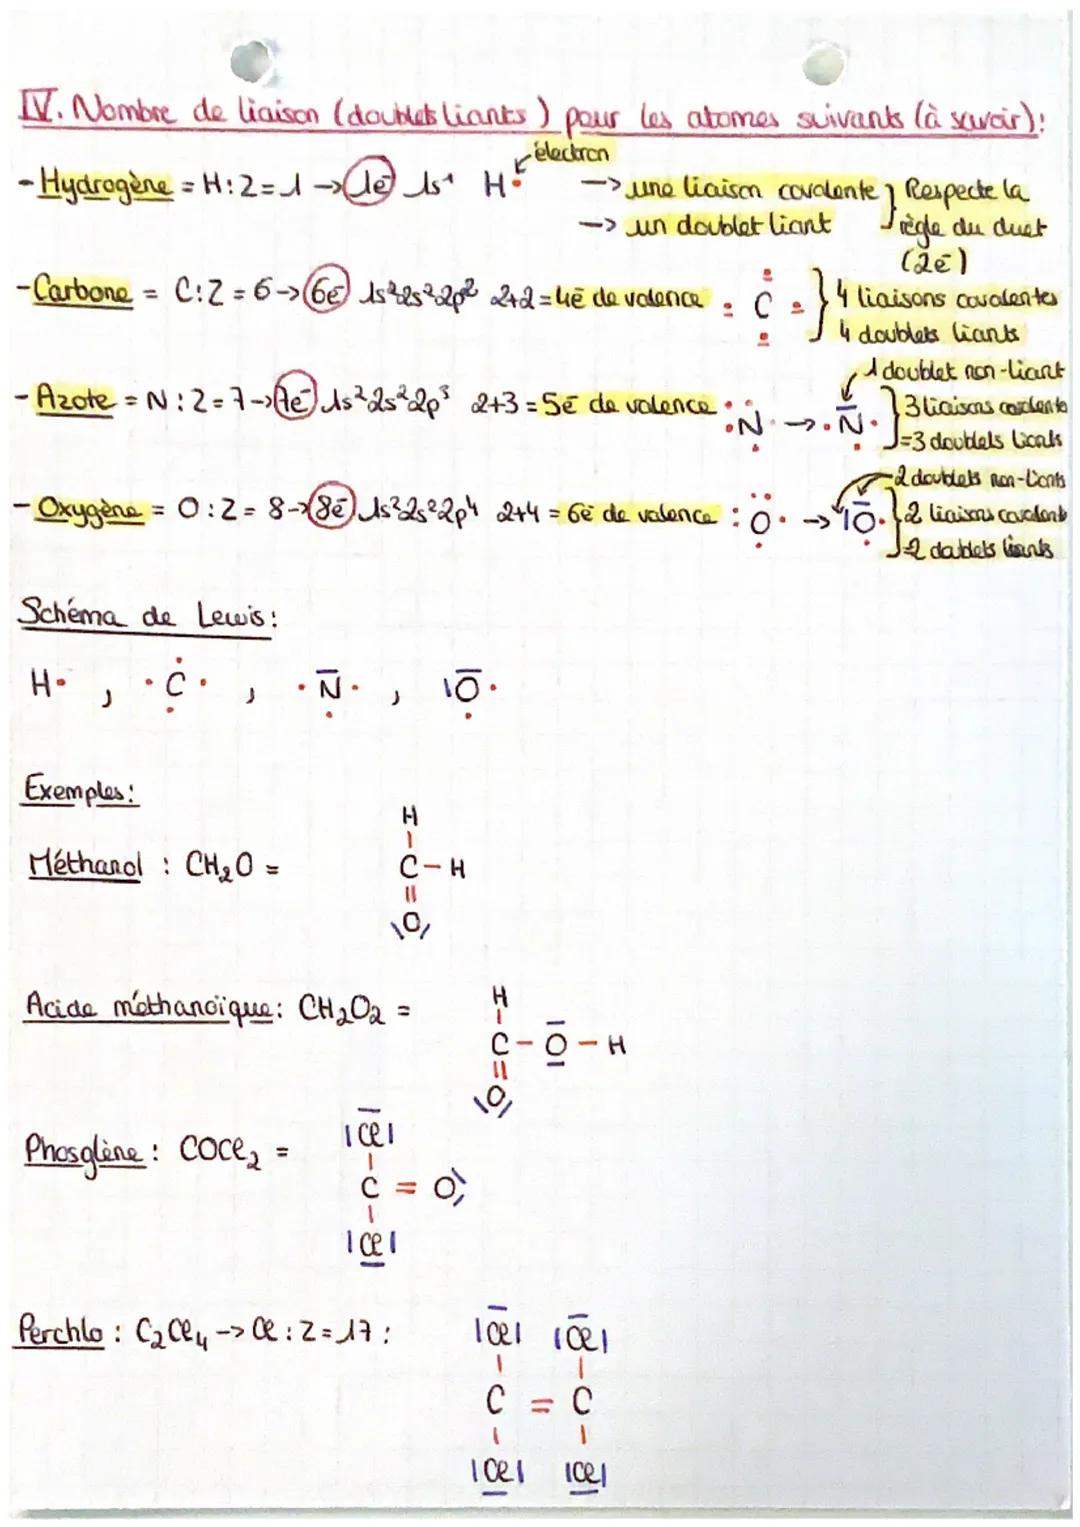 IV. Nombre de liaison (doublets liants) pour les atomes suivants (à savoir):
électron
- Hydrogène = H: Z=1 → 1e⁻ 1s¹ H• → une liaison covalente } Respecte la
→ un doublet liant règle du duet
(2e⁻)
- Carbone = C: Z=6 → 6e⁻ 1s²2s²2p² 2+2=4e⁻ de valence C } 4 liaisons covalentes
4 doublets liants
1 doublet non-liant
- Azote = N: Z=7 → 7e⁻ 1s²2s²2p³ 2+3=5e⁻ de valence N → N } 3 liaisons covalents
=3 doublets liants
2 doublets non-liants
- Oxygène = O: Z=8 → 8e⁻ 1s²2s²2p⁴ 2+4=6e⁻ de valence O → O } 2 liaisons covalents
=2 doublets liants
Schéma de Lewis:
H• , C , N , O
Exemples:
H
Méthanol : CH₂O = C-H
||
O
Acide méthanoïque: CH₂O₂ = H
C-O-H
||
O
Cl
Phosgène : COCl₂ =
C=O
Cl
Perchlo : C₂Cl₄ → Cl: Z=17: Cl Cl
C=C
Cl Cl